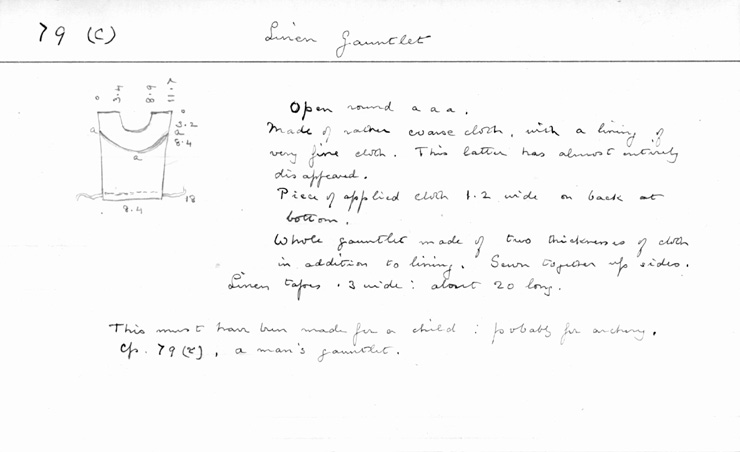 79 (c) Linen Gauntlet
0 3.4 8.9 11.7 0
3.2
a a
8.4
a
18
8.4
Open round a a a.
Made of rather coarse cloth, with a lining of
very fine cloth. This latter has almost entirely
disappeared.
Piece of applied cloth 1.2 wide on back at
bottom.
Whole gauntlet made of two thicknesses of cloth
in addition to lining. Sewn together up sides.
Linen tapes .3 wide : about 20 long.
This must have been made for a child : probably for archery.
Cp. 79 (z), a man's gauntlet.